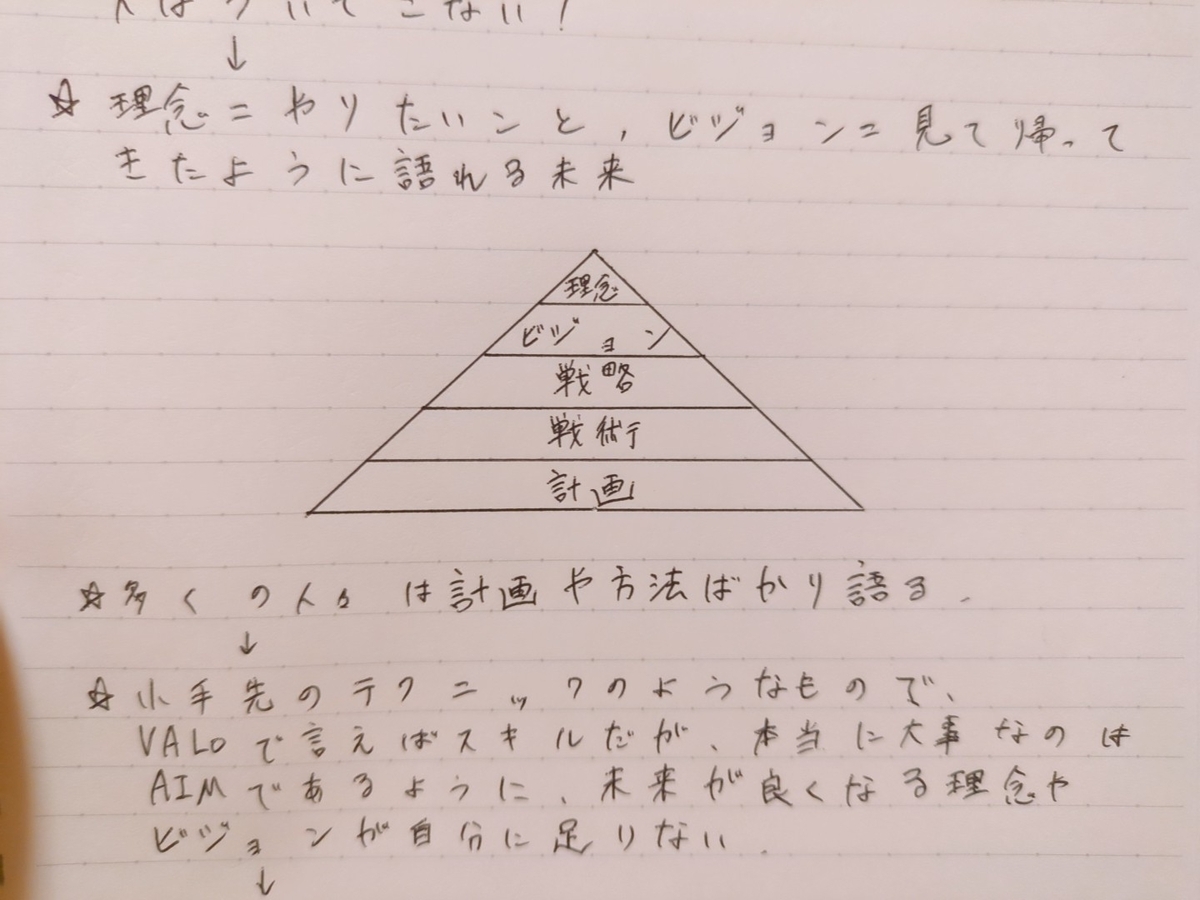 人はついてこない!
↓
☆ 理念=やりたいこと,ビジョン=見て帰って
きたように語れる未来
理念
ビジョン
戦略
戦術
計画
☆多くの人々は計画や方法ばかり語る.
↓
☆小手先のテクニックのようなもので、
VALOで言えばスキルだが、本当に大事なのは
AIMであるように、未来が良くなる理念や
ビジョンが自分に足りない.
↓